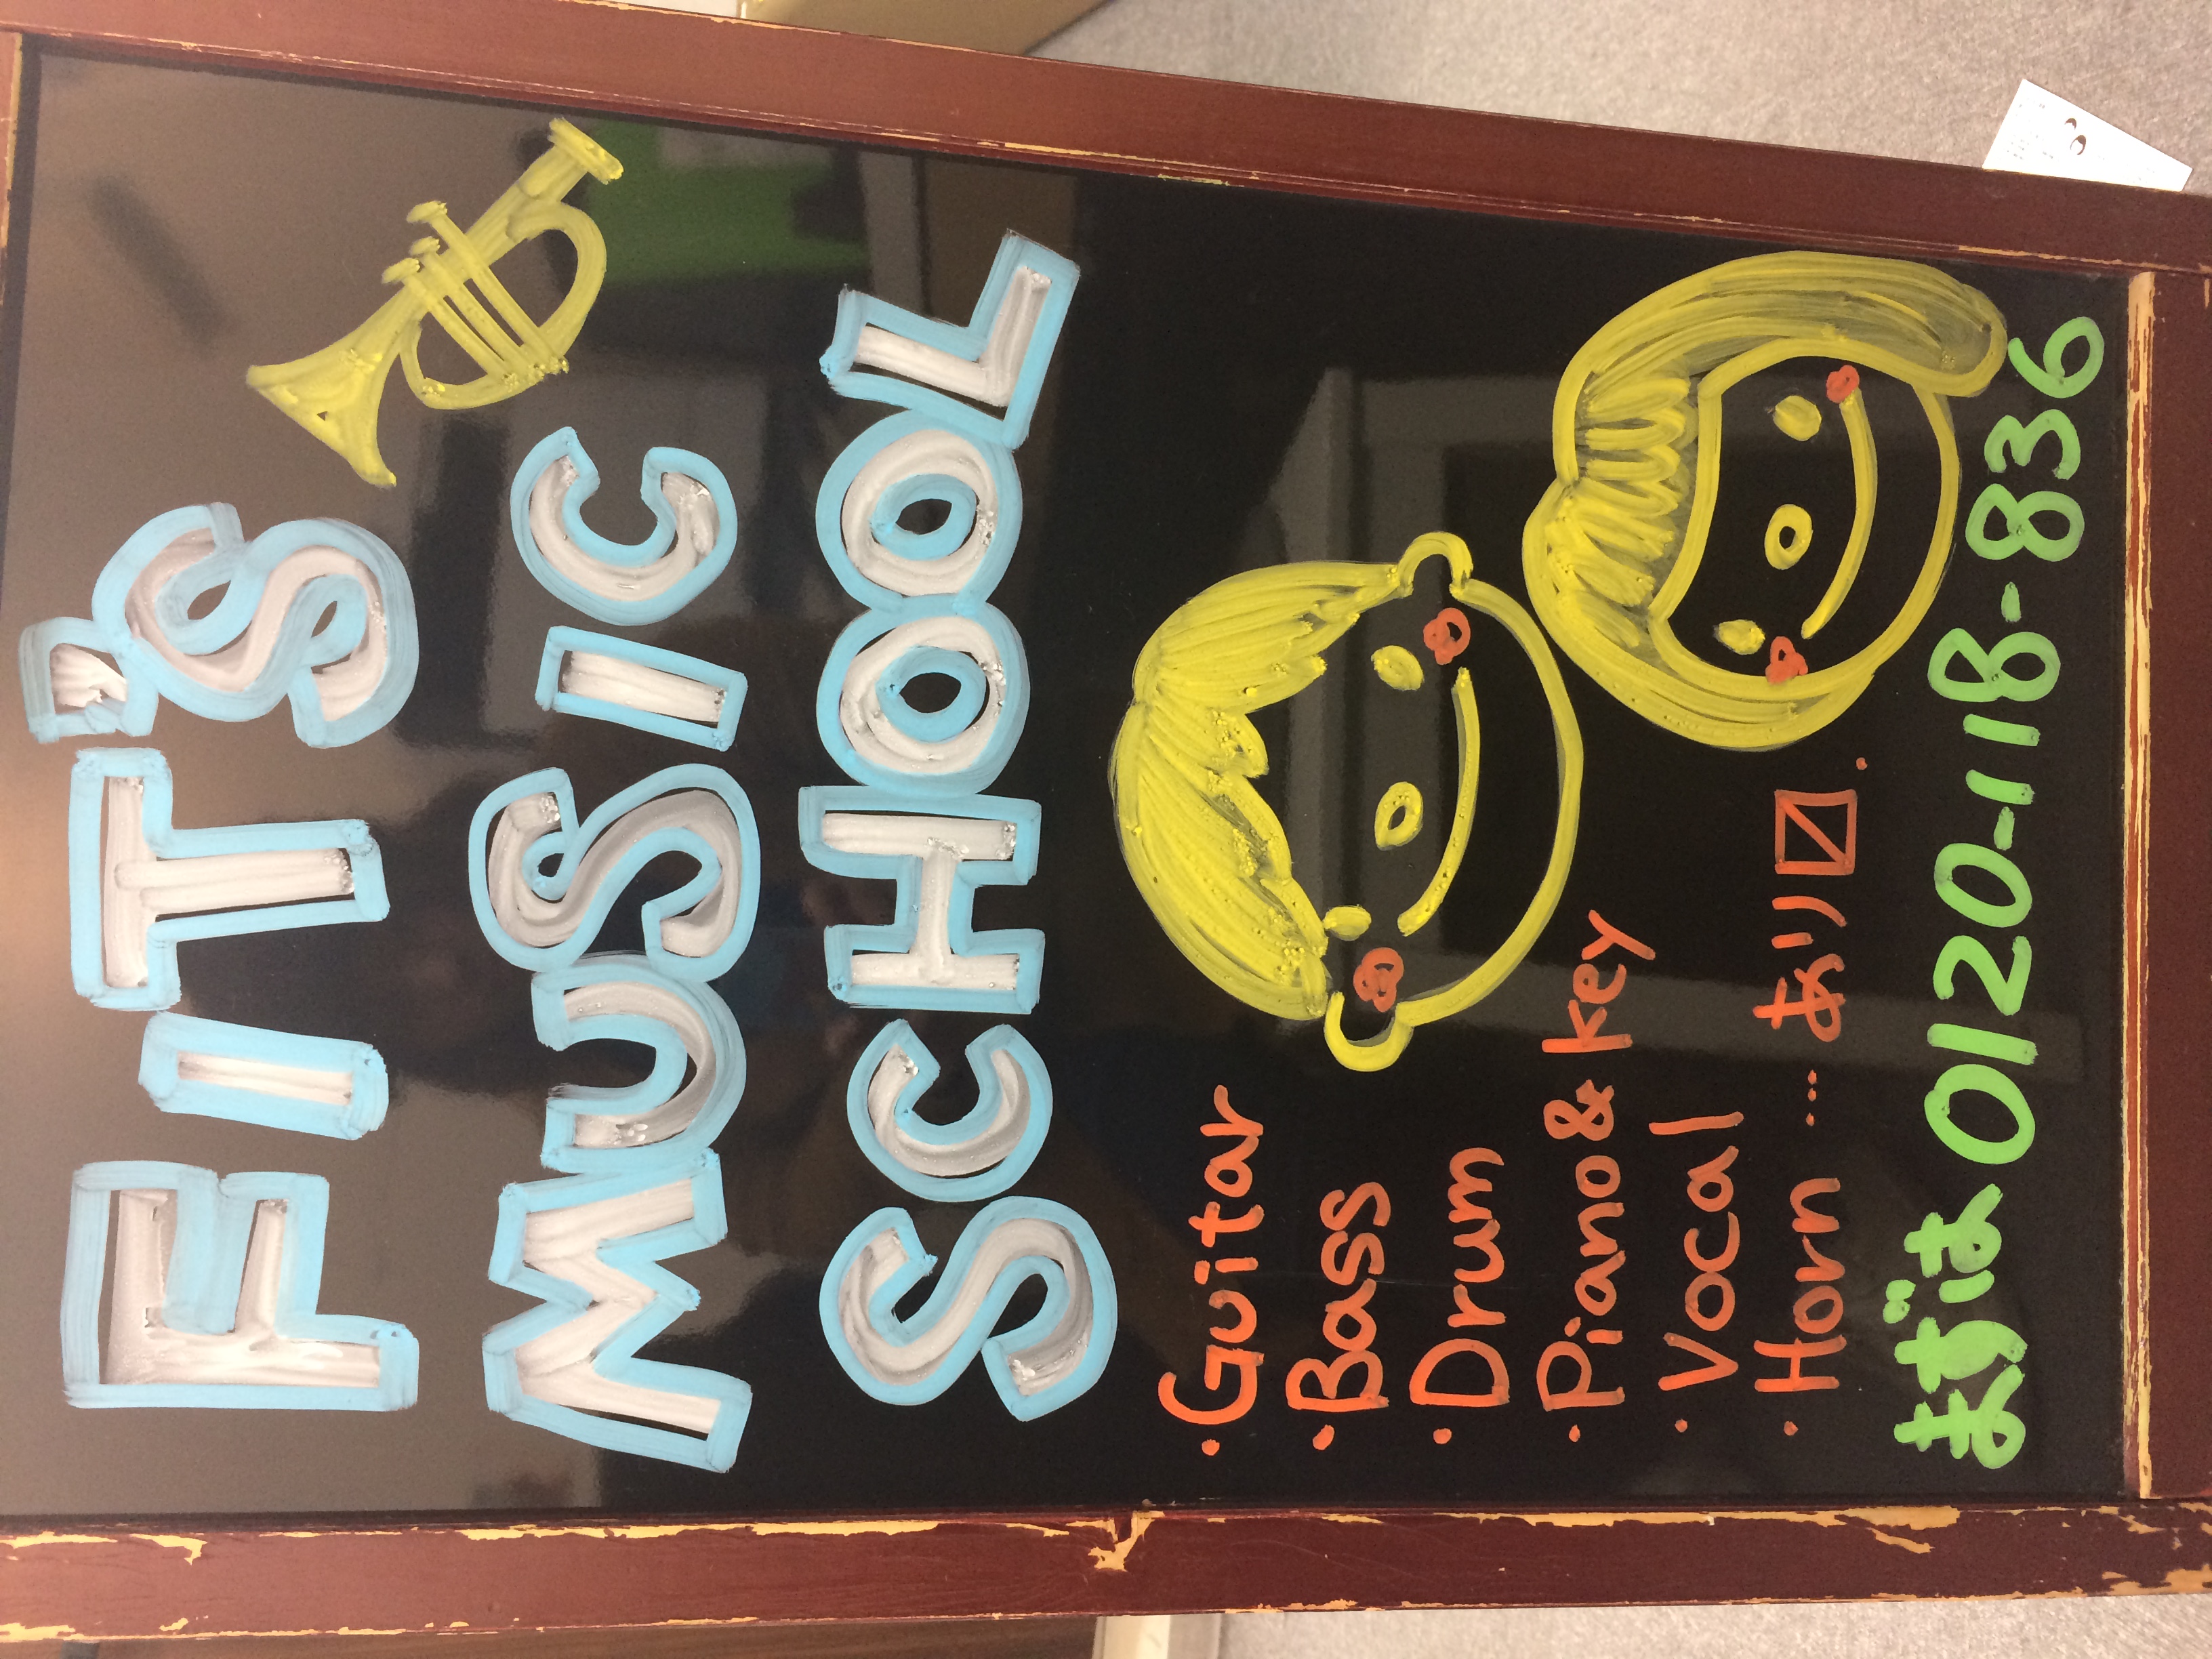 FIT'S
MUSIC
SCHOOL
・Guitar
・Bass
・Drum
・Piano & key
・Vocal
・Horn … あり〼.
まずは 0120-118-836